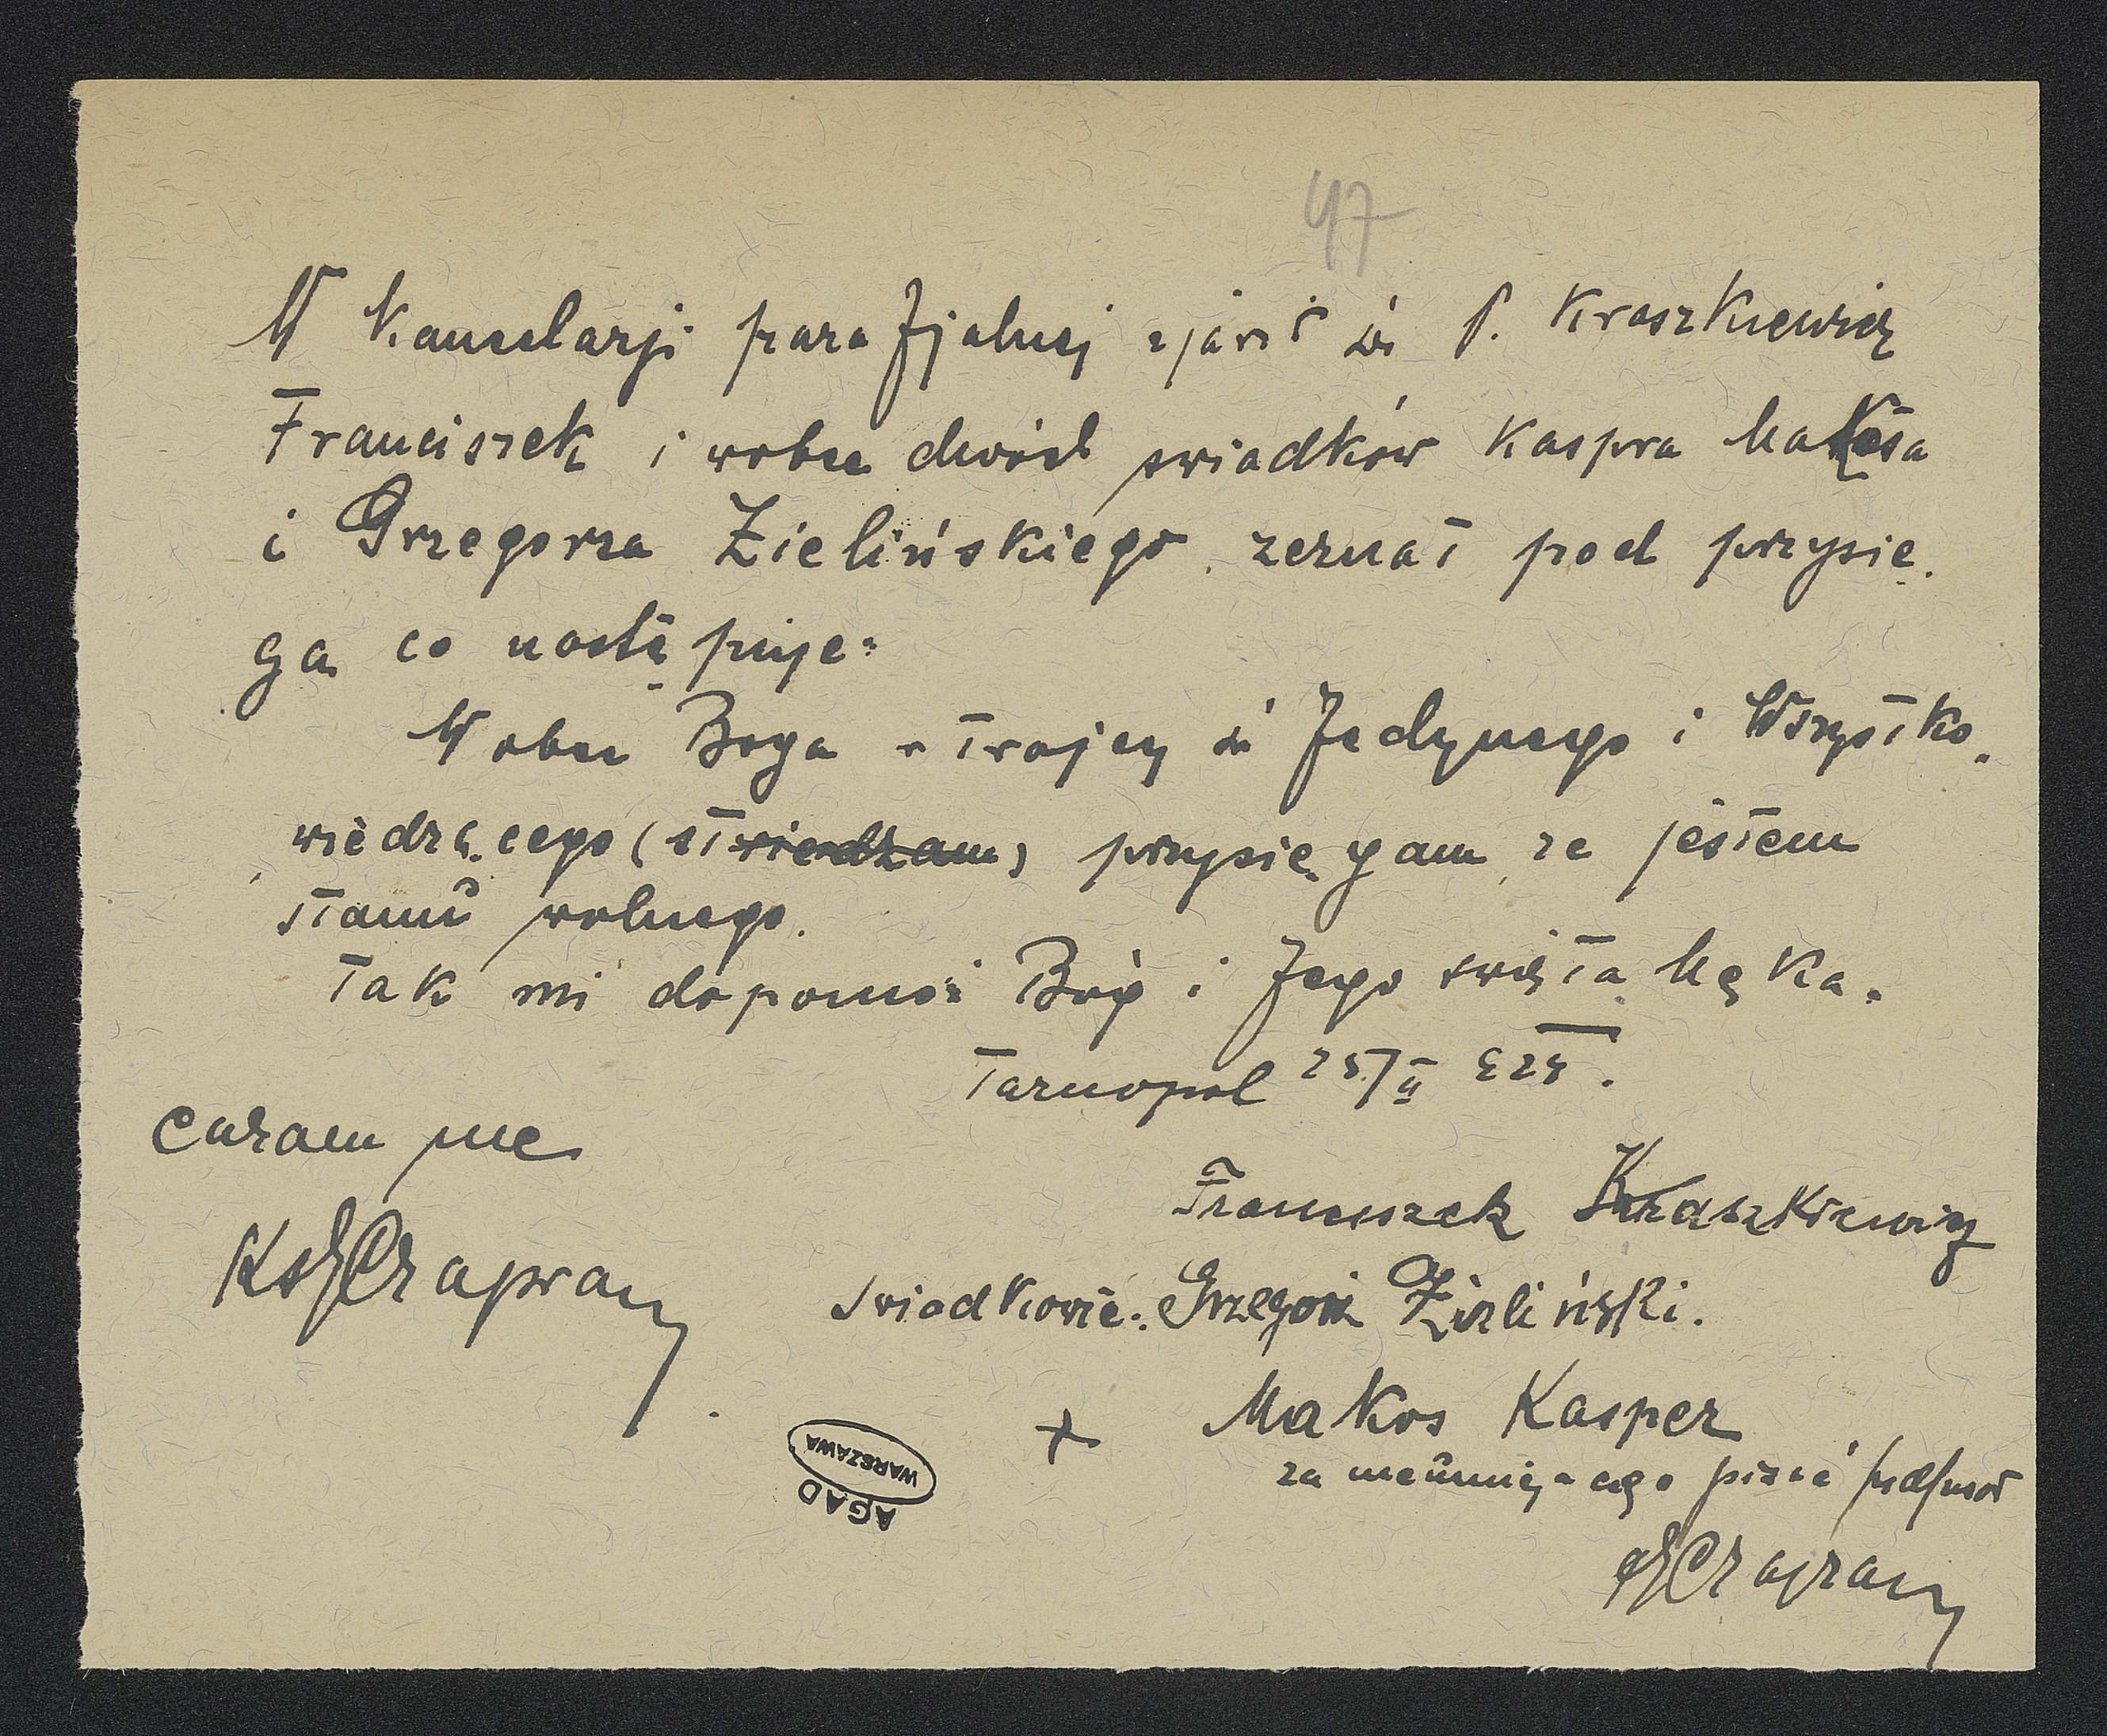 47
W kancelarji parafjalnej zjawił się P. Kraszkiewicz
Franciszek i wobec dwóch swiadków Kaspra Makosa
i Grzegorza Zielińskiego zeznał pod przysię.
gą co następuje:
Wobec Boga w Trojcy śś Jedynego i Wszystko.
wiedzącego (stwierdzam) przysięgam, ze jestem
stanu wolnego.
Tak mi dopomóż Bóg i Jego święta Męka.
Tarnopol 25/II
coram me
Franciszek Kraszkiewicz
Swiadkowie: Grzegorz Zieliński.
+ Makos Kasper
za nieumiącego pisać podpisał
WARSZAWA
AGAD